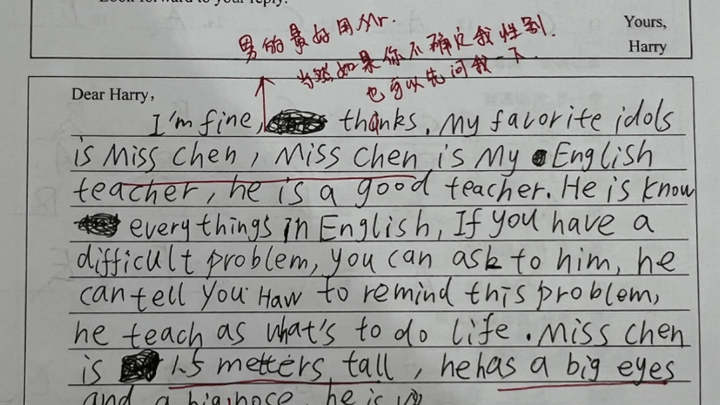 Look forward to your reply.
Yours,
Harry
男的最好用Mr.
当然如果你不确定我性别.
也可以先问我一下.
Dear Harry,
I'm fine, thanks. My favorite idols
is Miss Chen, Miss Chen is My English
teacher, he is a good teacher. He is know
everythings in English, If you have a
difficult problem, you can ask to him, he
can tell you Haw to remind this problem,
he teach as what's to do life. Miss Chen
is 1.5 metters tall, he has a big eyes
and a big nose, he is